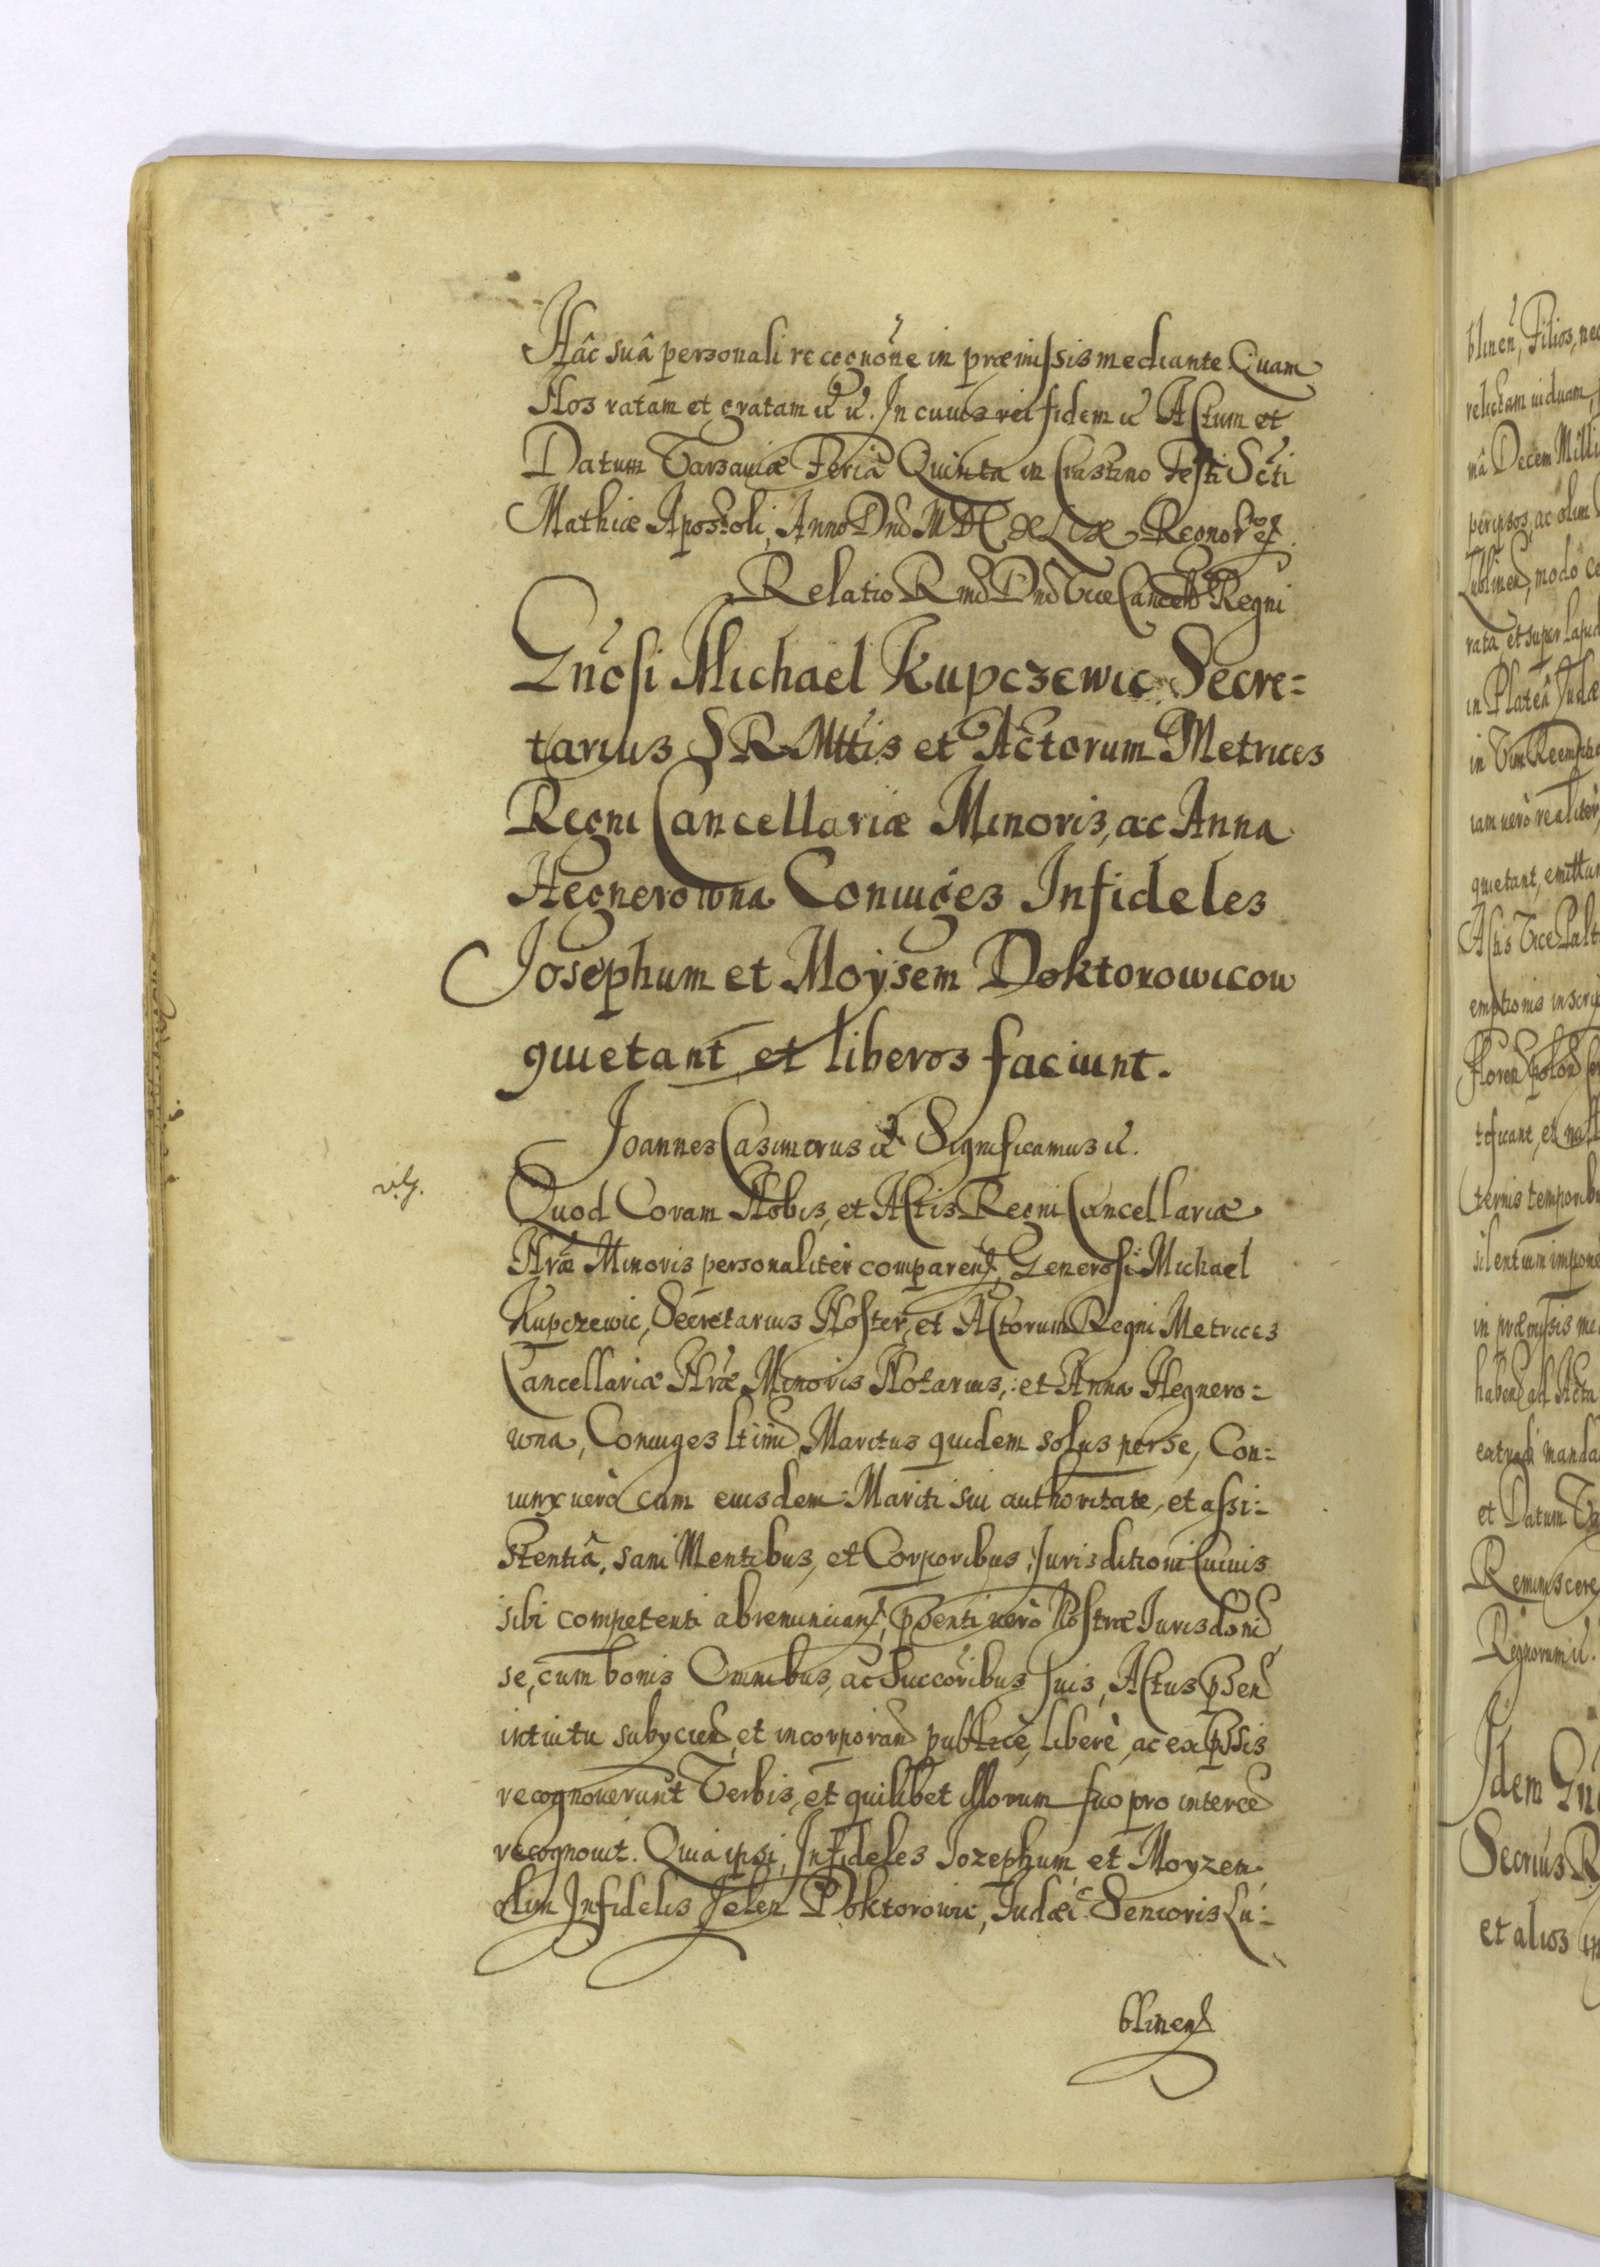 Hâc suâ personali recognõne in præmissis mediante Quam
Nos ratam et gratam etc etc. In cuius rei fidem etc Actum et
Datum Varsaviæ Feriâ Quinta in Crastino Festi Scti
Mathiæ Apostoli, Anno Dni Regnor
Relatio Rmd Dnd Vice Cancell Regni
Gnosi Michaël Kupczewic Secre=
tarius S R Mttis et Actorum Metrices
Regni Cancellariæ Minoris, ac Anna
Hegnerowna Coniuges Infideles
Josephum et Moysem Doktorowicow
quietant et liberos faciunt.
Joannes Casimirus etc Significamus etc.
Quod Coram Nobis, et Actis Regni Cancellariæ
Nræ Minoris personalitèr comparen, Generosi Michael
Kupczewic, Secretarius Noster, et Actorum Regni Metrices
Cancellariæ Nræ Minoris Notarius, et Anna Hegnero=
wna, Coniuges ltimi Maritus quidem solus per se, Con=
iunx uerò cum eiusdem Mariti sui authoritate, et assi=
stentiâ, sani Mentibus, et Corporibus, Jurisditioni Cuiuis
sibi competenti abrenuncian, psenti uerò Nostræ Jurisdoni
se, cum bonis Omnibus, ac Succoribus suis, Actus psen
intuitu subycien, et incorporan publicè, liberè, ac expssis
recognouerunt Verbis, et quilibet illorum suo pro interce
recognouit. Quia ipsi, Infideles Jozephum, et Moyzem
olim Infidelis Jelen Doktorowic, Judæi Senioris Lu=
blinen
blinen, Filios, nec
relictam uiduam,
mâ Decem Milli
per ipsos, ac olim
Lublinen, modo
rata, et super lapid
in Plateâ Judæ
in Vim Reemptio
iam uerò realitèr,
quietant, emittun
Actis Vice Palt
emptionis inscrip
Floren polon
tificant, et
ternis temporibu
silentium impone
in præmissis me
haben ad Acta
extradi manda
et Datum Va
Reminiscere
Regnorum etc.
Idem Gn
Secrius R
et alios in